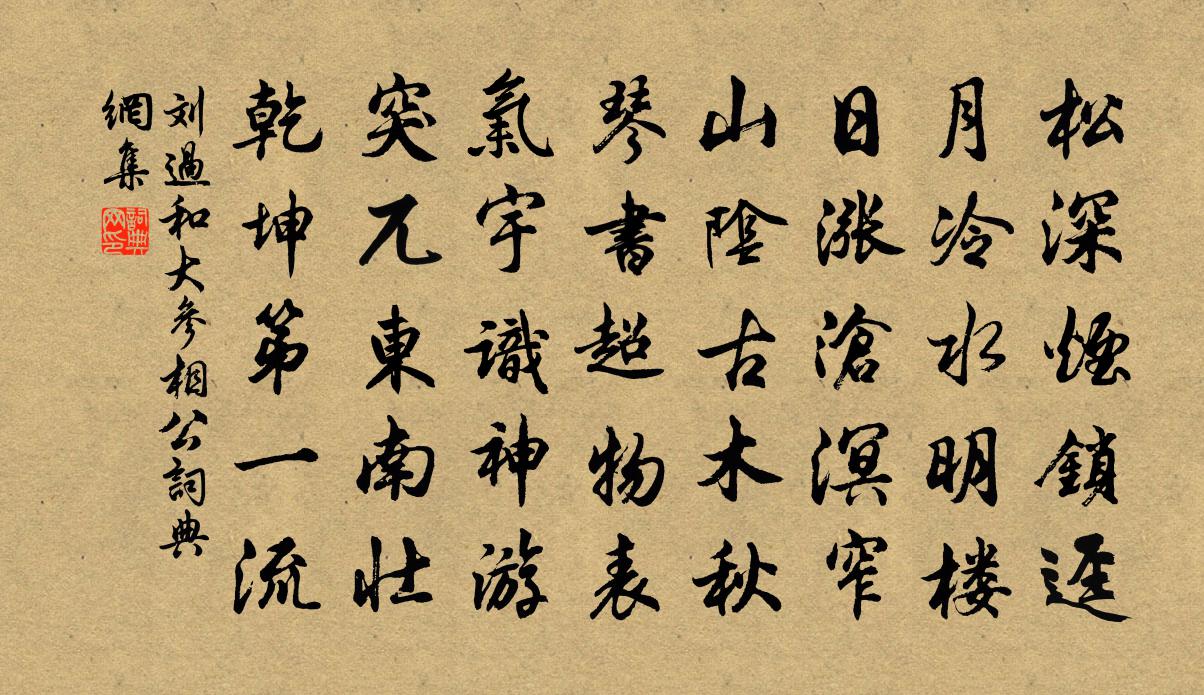 松深煙鎖逕
月冷水明楼
日漲滄溟窄
山陰古木秋
琴書超物表
氣宇識神游
突兀東南壮
乾坤第一流
刘過和大參相公詞典
網集
詞典
网印